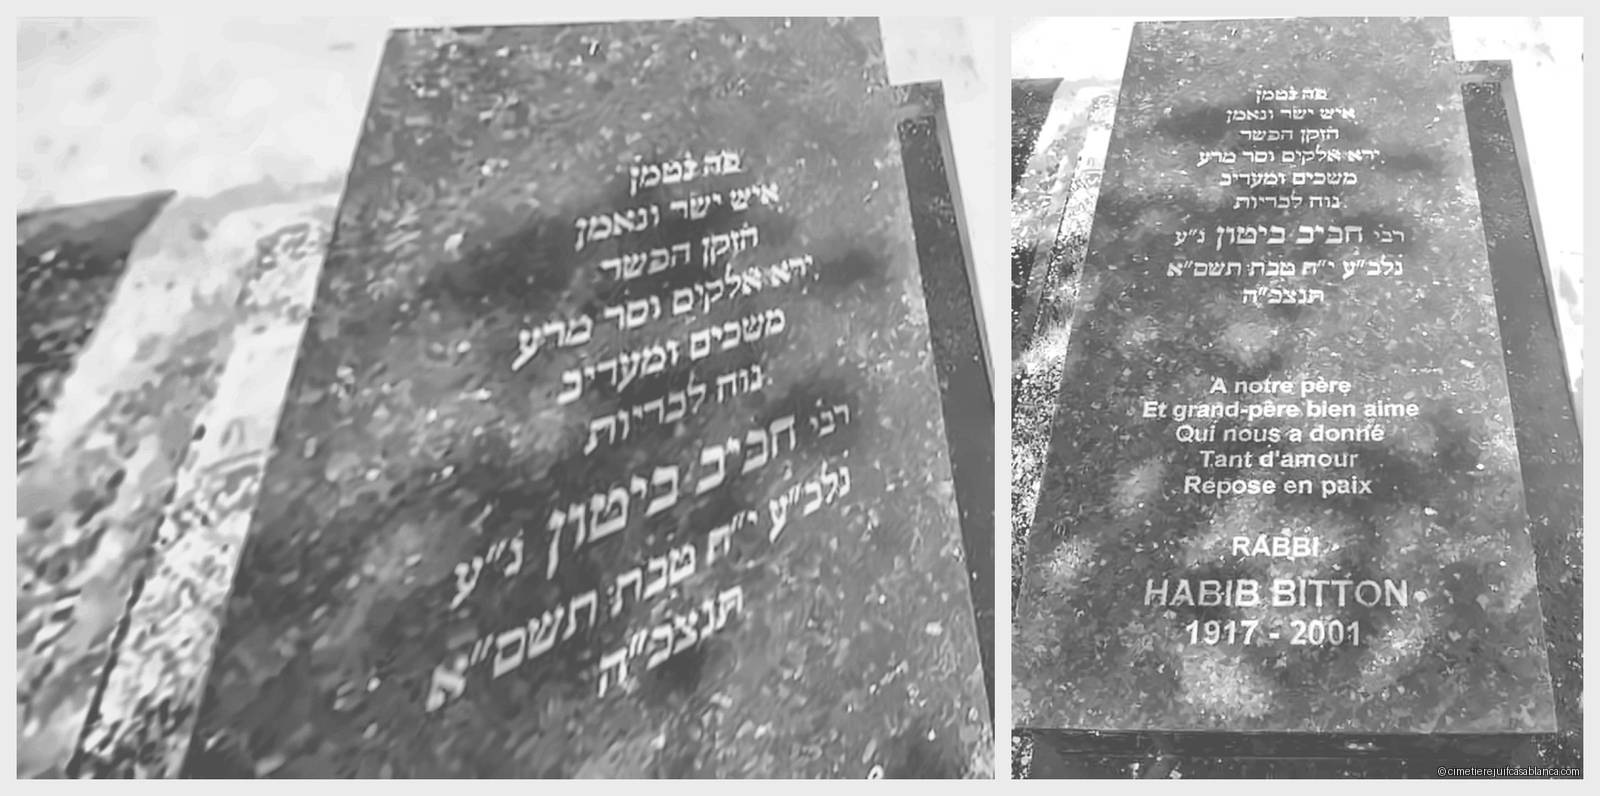 פה נטמן
איש ישר ונאמן
הזקן הכשר
ירא אלקים וסר מרע
משכים ומעריב
נוח לבריות
רבי חביב ביטון נ״ע
נלב״ע י״ח טבת תשס״א
תנצב״ה
פה נטמן
איש ישר ונאמן
הזקן הכשר
ירא אלקים וסר מרע
משכים ומעריב
נוח לבריות
רבי חביב ביטון נ״ע
נלב״ע י״ח טבת תשס״א
תנצב״ה
A notre père
Et grand-père bien aime
Qui nous a donné
Tant d'amour
Repose en paix
RABBI
HABIB BITTON
1917 - 2001
©cimetierejuifcasablanca.com